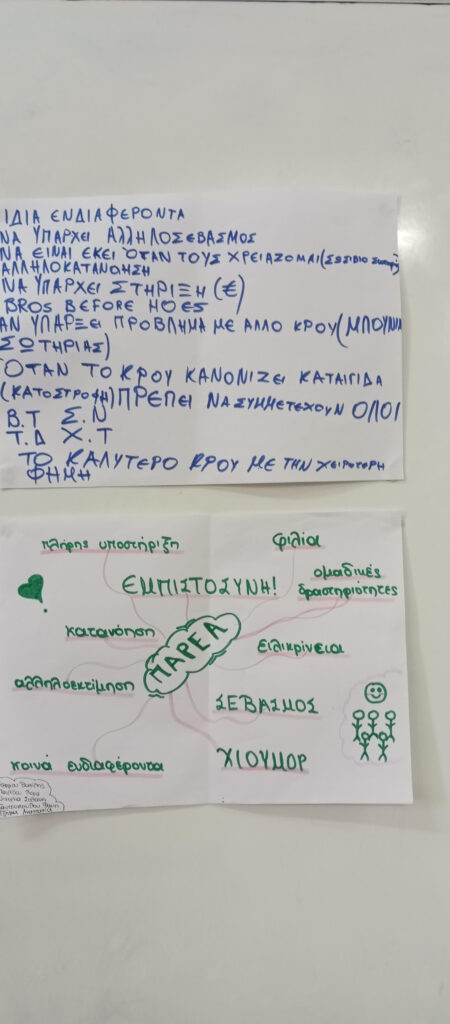 ΙΔΙΑ ΕΝΔΙΑΦΕΡΟΝΤΑ
ΝΑ ΥΠΑΡΧΕΙ ΑΛΛΗΛΟΣΕΒΑΣΜΟΣ
ΝΑ ΕΙΝΑΙ ΕΚΕΙ ΌΤΑΝ ΤΟΥΣ ΧΡΕΙΑΖΟΜΑΙ (ΣΩΣΙΒΙΟ
ΑΛΛΗΛΟΚΑΤΑΝΟΗΣΗ
ΝΑ ΥΠΑΡΧΕΙ ΣΤΗΡΙΞΗ (€)
BROS BEFORE HOES
ΑΝ ΥΠΑΡΞΕΙ ΠΡΟΒΛΗΜΑ ΜΕ ΑΛΛΟ ΚΡΟΥ (ΜΠΟΥΝΙΑ
ΣΩΤΗΡΙΑΣ)
ΌΤΑΝ ΤΟ ΚΡΟΥ ΚΑΝΟΝΙΖΕΙ ΚΑΤΑΙΓΙΔΑ
(ΚΑΤΟΣΤΡΟΦΗ) ΠΡΕΠΕΙ ΝΑ ΣΥΜΜΕΤΕΧΟΥΝ ΟΛΟΙ
Β.Τ Σ.Ν
Τ.Δ Χ.Τ
ΤΟ ΚΑΛΥΤΕΡΟ ΚΡΟΥ ΜΕ ΤΗΝ ΧΕΙΡΟΤΕΡΗ
ΦΗΜΗ
πλήρης υποστήριξη
φιλία
ΕΜΠΙΣΤΟΣΥΝΗ!
ομαδικές
δραστηριότητες
κατανόηση
ΠΑΡΕΑ
ειλικρίνεια
αλληλοεκτίμηση
ΣΕΒΑΣΜΟΣ
κοινά ενδιαφέροντα
ΧΙΟΥΜΟΡ